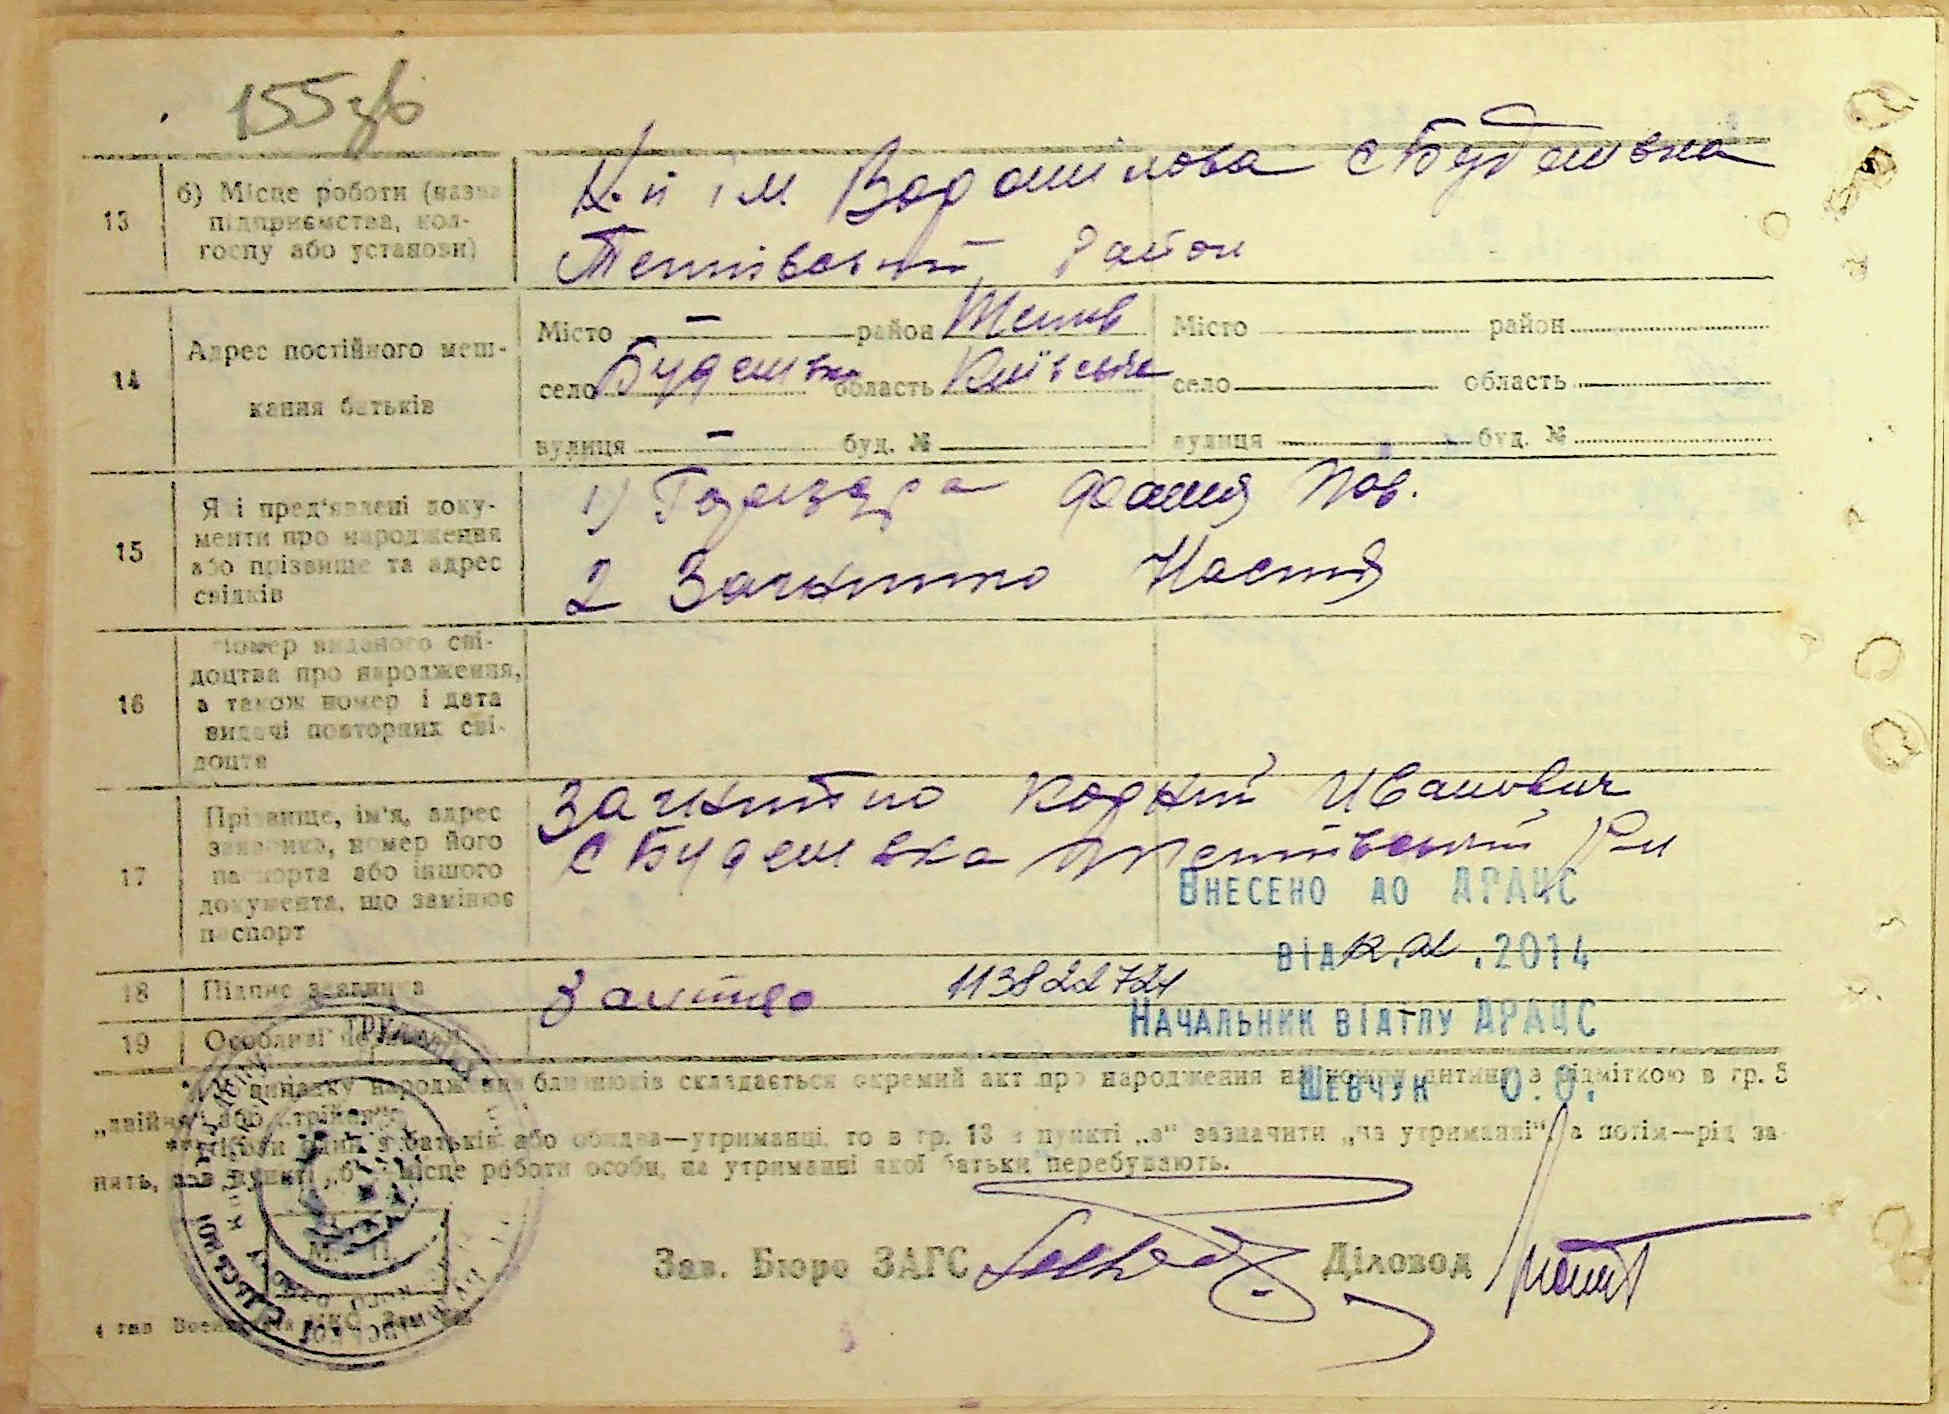 155 зв
13 б) Місце роботи (назва підприємства, колгоспу або установи)
К.п ім Ворошілова с Будешвка
Тетіївський Район
14 Адрес постійного мешкання батьків
Місто — район Тетіїв
село Будешвка область Київська
вулиця — буд. №
Місто район
село область
вулиця буд. №
15 Які пред'явлені документи про народження або прізвище та адрес свідків
1)
2 Настя
16 Номер виданого свідоцтва про народження, а також номер і дата видачі повторних свідоцтв
17 Прізвище, ім'я, адрес заявника, номер його паспорта або іншого документа, що замінює паспорт
Корній Иванович
с Будешвка Тетіївський Р-н
Внесено до ДРАЦС
від 12.02.2014
18 Підпис заявника
113822724
Начальник відділу ДРАЦС
19 Особливі
Шевчук О.О.
випадку народження близнюків складається окремий акт про народження на кожну дитину з відміткою в гр. 5
„двійня" або „трійня".
один з батьків або обидва—утриманці, то в гр. 13 в пункті „а" зазначити „на утриманні", а потім—рід занять, а в пункті „б" місце роботи особи, на утриманні якої батьки перебувають.
М. П.
Зав. Бюро ЗАГС
Діловод